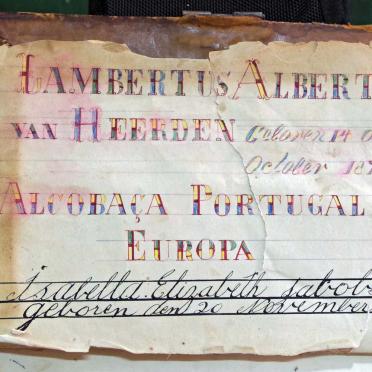 LAMBERTUS ALBERT
VAN HEERDEN Geboren 14
October 187
ALCOBAÇA PORTUGAL
EUROPA
Izabella Elizabeth Jakob
geboren den 20 November